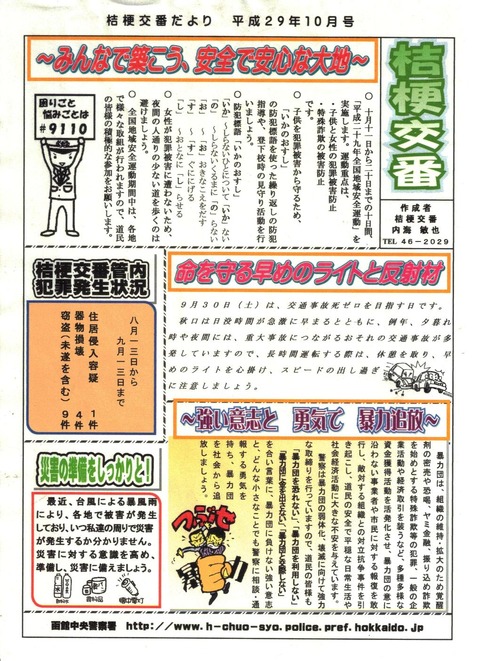 桔梗交番だより　平成２９年１０月号
～みんなで築こう、安全で安心な大地～
桔梗交番
作成者
桔梗交番
内海　敏也
TEL 46-2029
○　十月十一日から二十日までの十日間、
「平成二十九年全国地域安全運動」を
実施します。運動重点は、
・子供と女性の犯罪被害防止
・特殊詐欺の被害防止
です。
○　子供を犯罪被害から守るため、
「いかのおすし」
の防犯標語を使った繰り返しの防犯
指導や、登下校時の見守り活動を行
いましょう。
防犯標語「いかのおすし」
「いか」～しらないひとについて「いか」ない
「の」～しらないくるまに「の」らない
「お」～「お」おきなこえをだす
「す」～「す」ぐににげる
「し」～おとなに「し」らせる
○　女性が犯罪被害に遭わないため、
夜間の人通りの少ない道を歩くのは
避けましょう。
○　全国地域安全運動期間中は、各地
で様々な取組が行われますので、道民
の皆様の積極的な参加をお願いします。
困りごと
悩みごとは
#9110
桔梗交番管内
犯罪発生状況
八月一三日から
九月一三日まで
住居侵入容疑　１件
器物損壊　４件
窃盗（未遂を含む）９件
命を守る早めのライトと反射材
９月３０日（土）は、交通事故死ゼロを目指す日です。
秋口は日没時間が急激に早まるとともに、例年、夕暮れ
時や夜間には、重大事故につながるおそれの交通事故が多
発していますので、長時間運転する際は、休憩を取り、早
めのライトを心掛け、スピードの出し過ぎ
に注意しましょう。
～強い意志と　勇気で　暴力追放～
暴力団は、組織の維持・拡大のため覚醒
剤の密売や恐喝、ヤミ金融、振り込め詐欺
を始めとする特殊詐欺等の犯罪、一般の企
業活動や経済取引を装うなど、多種多様な
資金獲得活動を活発化させ、暴力団の意に
沿わない事業者や市民に対する報復を敢
行し、敵対する組織との対立抗争事件を引
き起こし、道民の安全で平穏な日常生活や
社会経済活動に大きな不安を与えています。
警察は暴力団の弱体化、壊滅に向けて強力
な取締りを行っていますので、道民の皆様も
「暴力団を恐れない」、「暴力団を利用しない」
「暴力団に金を出さない」「暴力団と交際しない」
を合い言葉に、暴力団に負けない強い意志
と、どんな小さなことでも警察に相談・通
報する勇気を
持ち、暴力団
を社会から追
放しましょう。
つぶせ
災害の準備をしっかりと！
最近、台風による暴風雨
により、各地で被害が発生
しており、いつ私達の周りで災害
が発生するか分かりません。
災害に対する意識を高め、
準備し、災害に備えましょう。
函館中央警察署　http://www.h-chuo-syo.police.pref.hokkaido.jp